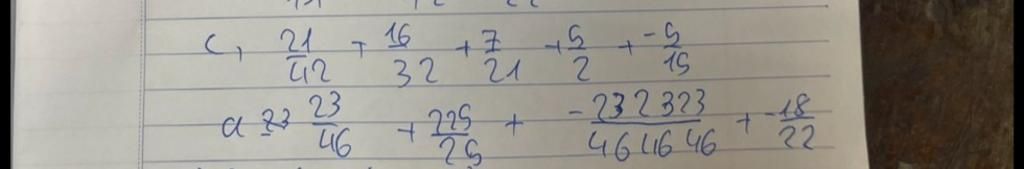 c, 21/42 + 16/32 + 7/21 + 5/2 + -5/15
d 23/46 + 225/25 + -232323/464646 + -18/22